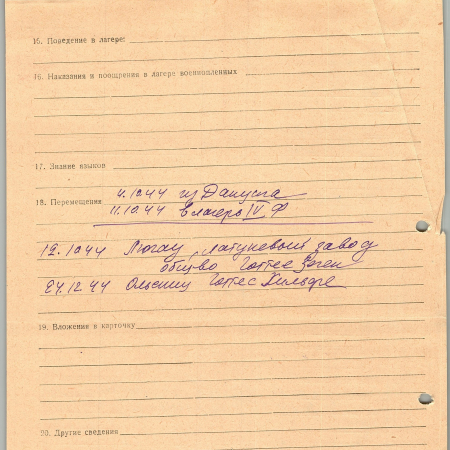 15. Поведение в лагере:
16. Наказания и поощрения в лагере военнопленных
17. Знание языков
18. Перемещения 4.10.44 из Данцига
11.10.44 в лагерь IV Ф
12.10.44 Люгау, латуневый завод
общво Готтес Зеген
24.12.44 Ольсниц Готтес Хильфе
19. Вложения в карточку
20. Другие сведения